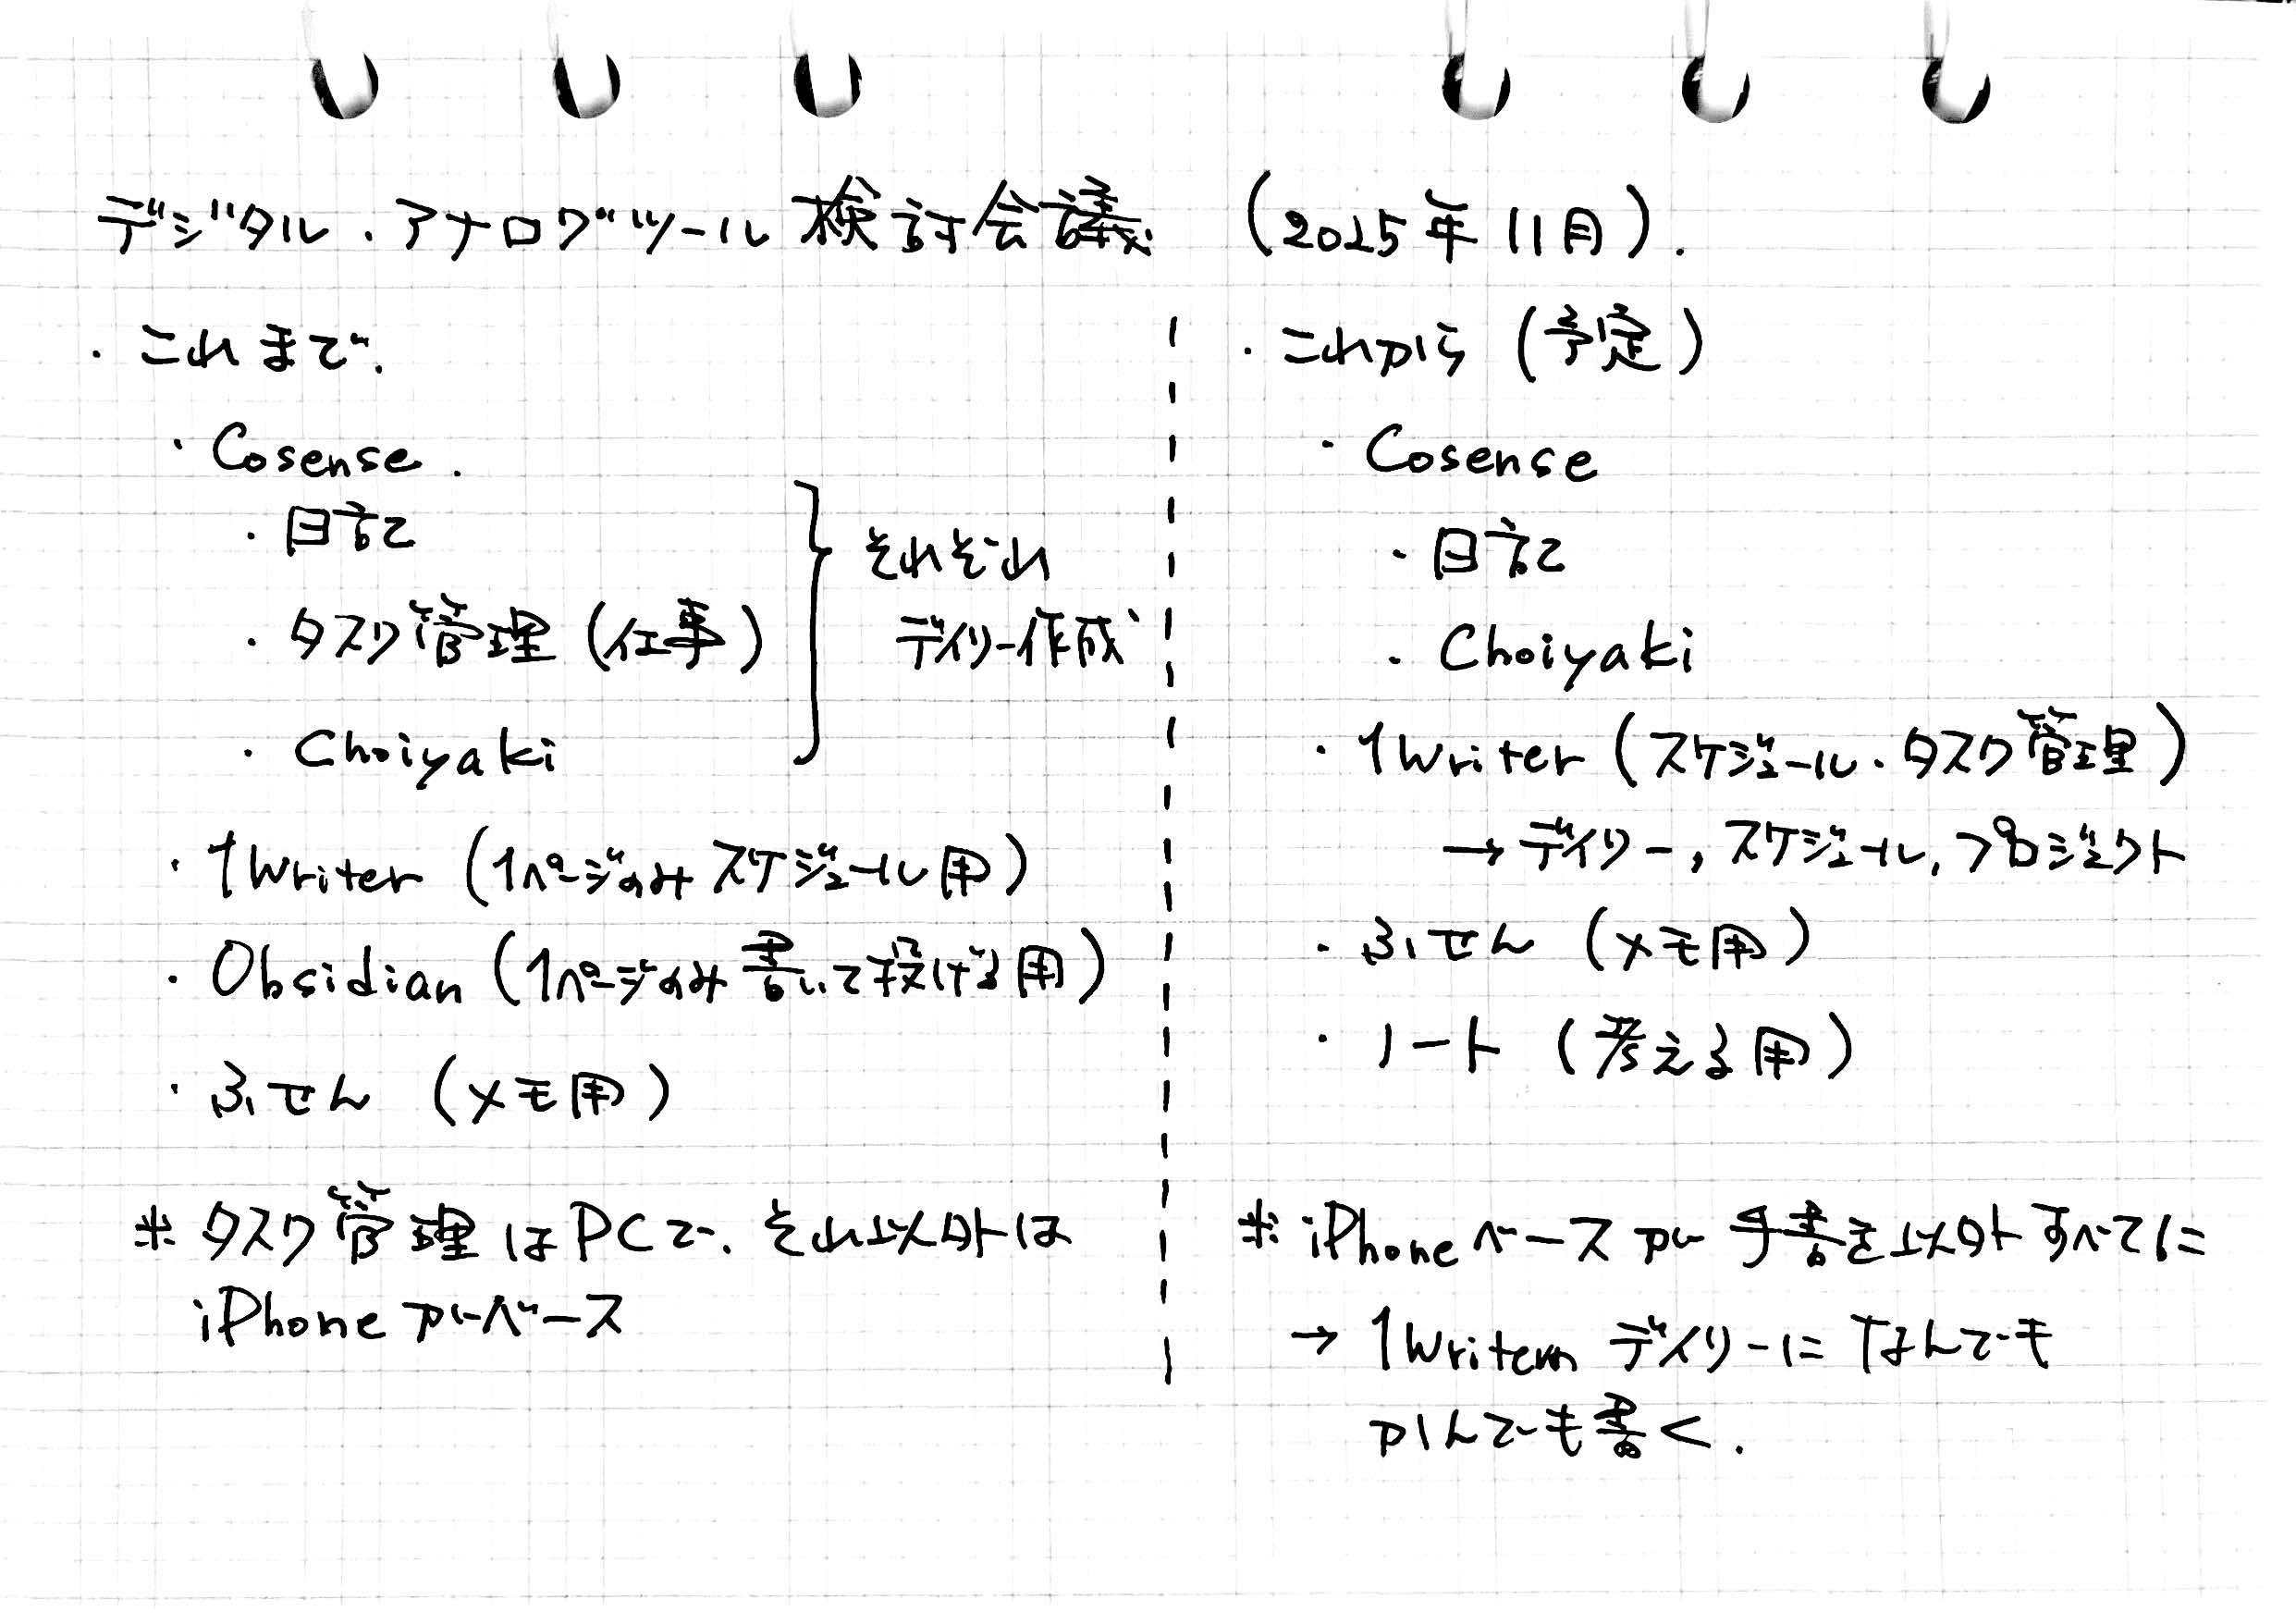 デジタル・アナログツール検討会議 (2025年11月).
・これまで.
・Cosense.
・日記
・タスク管理(仕事)
・Choiyaki
それぞれ
デイリー作成
・1Writer (1ページのみスケジュール用)
・Obsidian (1ページのみ書いて投げる用)
・ふせん (メモ用)
※タスク管理はPCで、それ以外は
iPhoneがベース
・これから (予定)
・Cosense
・日記
・Choiyaki
・1Writer (スケジュール・タスク管理)
→デイリー, スケジュール, プロジェクト
・ふせん (メモ用)
・ノート (考える用)
※iPhoneベースが手書き以外すべてに
→1Writerのデイリーになんでも
かんでも書く.